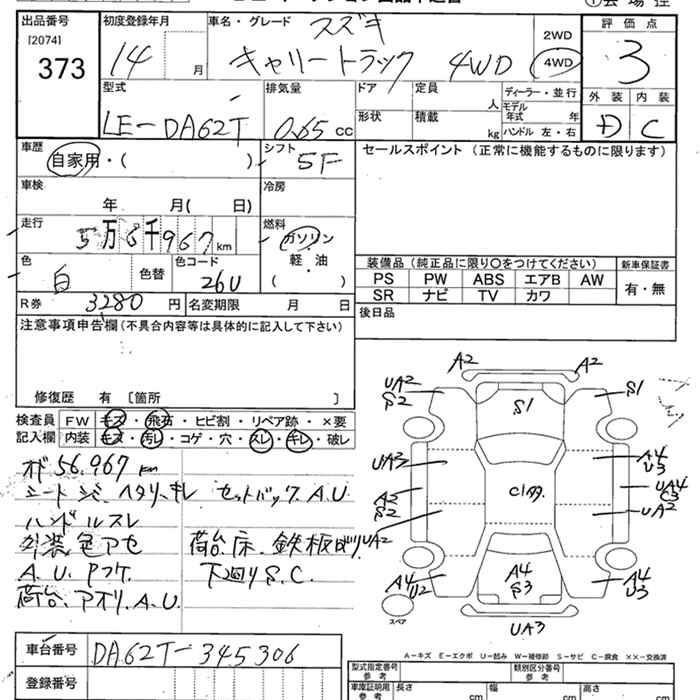 出品番号
[2074]
373
初度登録年月
14 月
車名・グレード スズキ
キャリートラック 4WD
2WD
4WD
評価点
3
外装 内装
D C
型式
LE-DA62T
排気量
0.65 cc
ドア 定員
人
形状 積載
kg
ディーラー・並行
モデル年式 年
ハンドル 左・右
車歴
自家用・( )
シフト
5F
セールスポイント (正常に機能するものに限ります)
車検
年 月( 日)
冷房
走行
5万6千967km
燃料
ガソリン
軽・油
( )
色
白
色替
色コード
26U
装備品 (純正品に限り〇をつけてください)
新車保証書
PS PW ABS エアB AW
有・無
SR ナビ TV カワ
R券 3280 円 名変期限 月 日
後日品
注意事項申告欄(不具合内容等は具体的に記入して下さい)
修復歴 有 [箇所 ]
検査員 FW キズ・飛石・ヒビ割・リペア跡・×要
記入欄 内装 キズ・汚レ・コゲ・穴・スレ・キレ・破レ
オド56,967km
シートシミ・ヘタリ、キレ セットバック.A.U
ハンドルスレ
外装色アセ 荷台床.鉄板ばり
A.U.Pフケ 下回りS.C.
荷台.アオリ.A.U.
A2 A2
UA2
S2
S1
S1
UA2
A4
U3
A2
S2
UA4
C3
UA2
UA2
A4
U2
A4
S3
A4
U3
スペア
UA3
A-キズ E-エクボ U-凹み W-補修跡 S-サビ C-腐食 XX-交換済
車台番号 DA62T-345306
登録番号
型式指定番号
参考
類別区分番号
参考
車庫証明用
参考
長さ cm 幅 cm 高さ cm